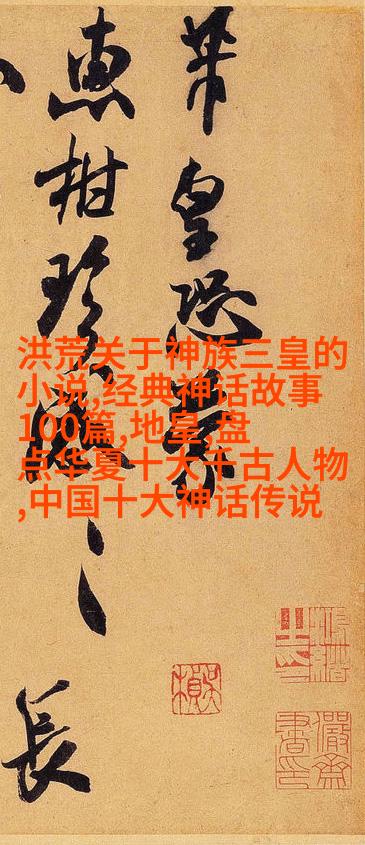 洪荒关于神族三皇的
小说,经典神话故事
100篇,地皇,盘
点华夏十大千古人物
,中国十大神话传说
芾皇恐蒙
惠柑珍感〻長